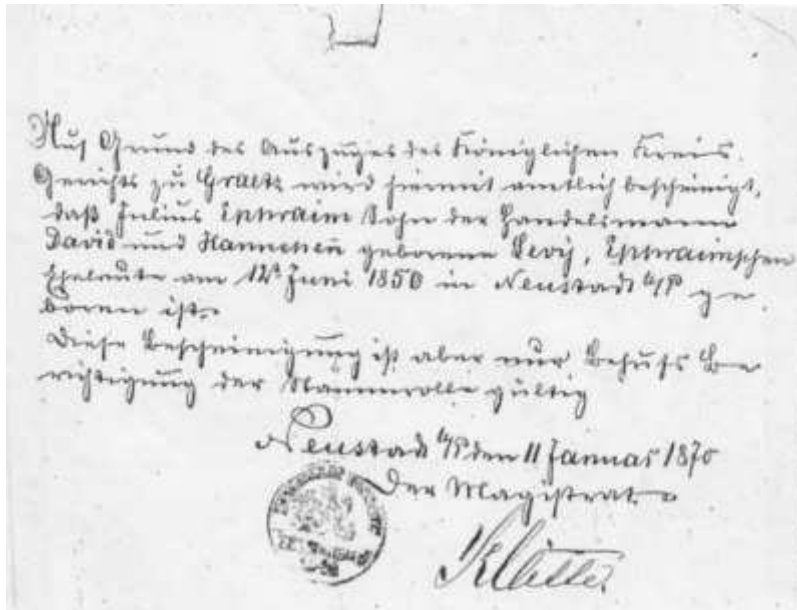 Auf Grund des Auszuges des Königlichen Kreis-
Gerichts zu Graetz wird hiermit amtlich bescheinigt,
daß Julius Ephraim Sohn der Handelsmann
David und Hannchen geborene Levy, Ephraimschen
Eheleute am 12t Juni 1850 in Neustadt b/P ge-
boren ist.
Diese Bescheinigung ist aber nur Behufs Be-
richtigung der Stammrolle gültig
Neustadt b/P den 11 Januar 1870
Der Magistrat